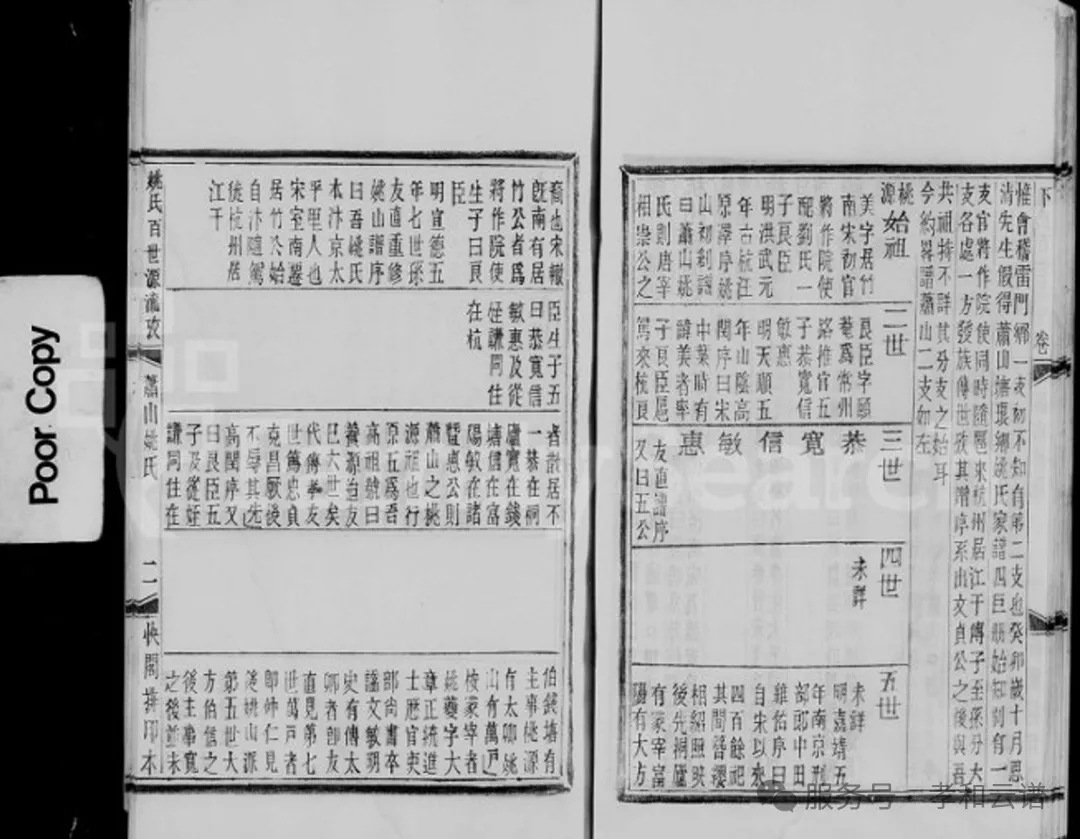 卷
下
惟會稽雷門鄉一支初不知有第二支也癸卯歲十月思
淸先生假得蕭山塘環鄉姚氏家譜四巨册始知别有一
支官將作院使同時隨扈來杭州居江干傳子至孫分大
支各處一方發族傳世攷其譜序系出文貞公之後與吾
共祖特不詳其分支之始耳
今約畧譜蕭山二支如左
桃源
始祖
美字居竹
南宋初官
將作院使
配劉氏一
子良臣
明洪武元
年古杭汪
原澤序姚
山初剏譜
曰蕭山姚
氏則唐宰
相崇公之
二世
良臣字願
菴爲常州
路推官五
子恭寬信
敏惠
明天順五
年山陰高
閏序曰宋
中葉時有
諱美者率
子良臣扈
駕來杭良
三世
恭
寬
信
敏
惠
友直譜序
又曰五公
四世
未詳
五世
未詳
明嘉靖五
年南京刑
部郎中田
維佑序曰
自宋以來
四百餘祀
其間簪纓
相紹照映
後先桐廬
有冢宰富
陽有大方
裔也宋轍
旣南有居
竹公者爲
將作院使
生子曰良
臣
明宣德五
年七世孫
友直重修
姚山譜序
曰吾姚氏
本汴京太
平里人也
宋室南遷
居竹公始
自汴隨駕
徙杭州居
江干
臣生子五
曰恭寬信
敏惠及從
姪謙同住
在杭
者散居不
一恭在桐
廬寬在錢
塘信在富
陽敏在諸
暨惠公則
蕭山之桃
源祖也行
原五爲吾
高祖號曰
養源迨友
巳六世矣
代傳孝友
世篤忠貞
克昌厥後
不辱其先
高閏序又
曰良臣五
子及從姪
謙同住在
伯錢塘有
主事桃源
有太卿姚
山有萬戸
桉冢宰者
姚夔字大
章正統進
士歷官吏
部尚書卒
諡文敏明
史有傳太
卿者卽友
直見第七
世萬戸者
卽仲仁見
後姚山派
第五世大
方伯信之
後主事寬
之後並未
姚氏百世源流攷
蕭山姚氏
二
快閣排印本
Poor Copy
服务号 孝和云谱